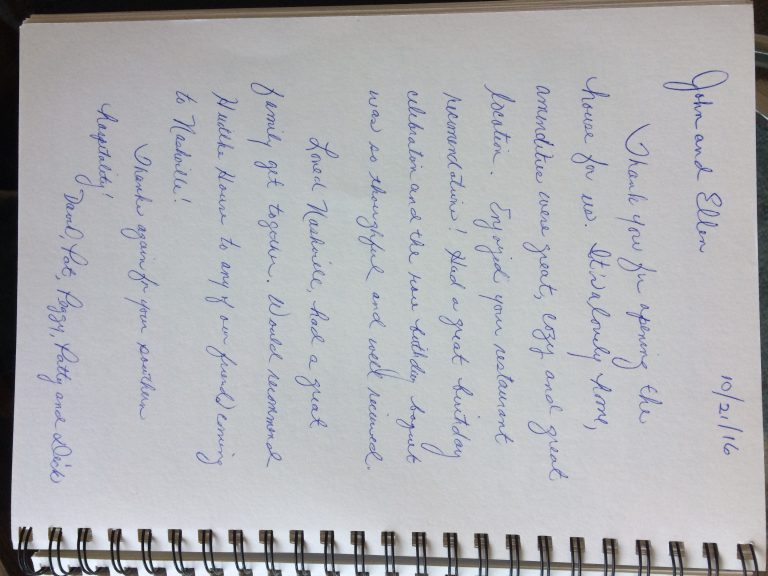 10/21/16
John and Ellen
Thank you for opening the
house for us. It is a lovely home,
amenities were great, cozy and great
location. Enjoyed your restaurant
recomendations! Had a great birthday
celebration and the rose birthday boquet
was so thoughtful and well received.
Loved Nashville, had a great
family get together. Would recommend
House to any of our friends coming
to Nashville!
Thanks again for your southern
hospitality!
Pat, Peggy, Patty and Dick